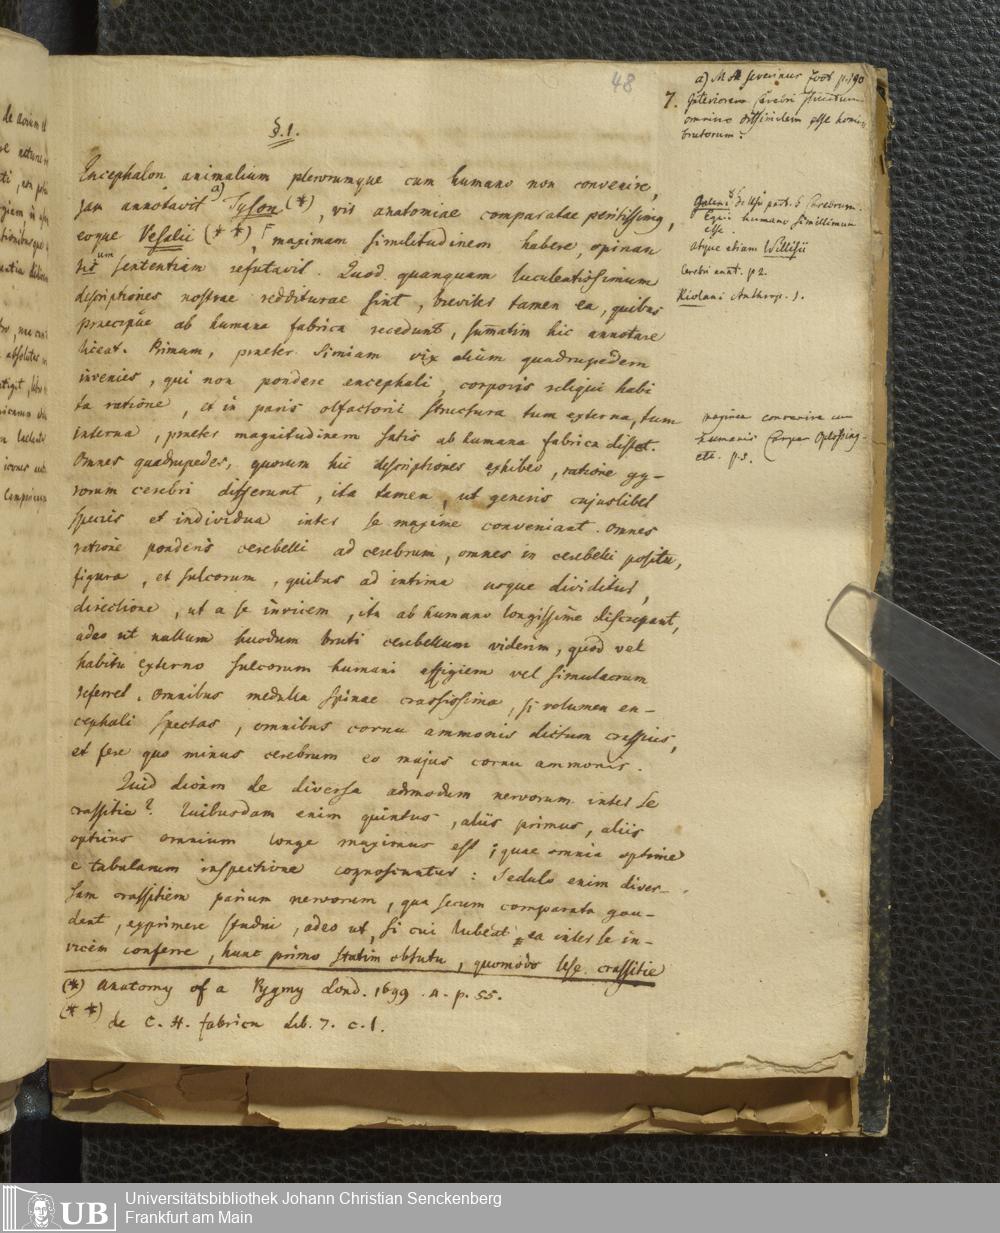 48
§.1.
Encephalon animalium plerorumque cum humano non convenire,
jam annotavit a) Tyson (*), vir anatomiae comparatae peritissimus,
eoque Vesalii (**), maximam similitudinem habere, opinan
tis sententiam refutavit. Quod quanquam luculentissimum
descriptiones nostrae redditurae sint, breviter tamen ea, quibus
praecipue ab humana fabrica recedunt, sumatim hic annotare
liceat. Primum, praeter Simiam vix alium quadrupedem
invenies, qui non pondere encephali, corporis reliqui habi
ta ratione, et in paris olfactorii structura tum externa, tum
interna, praeter magnitudinem satis ab humana fabrica differat.
Omnes quadrupedes, quorum hic descriptiones exhibeo, ratione gy-
rorum cerebri differunt, ita tamen, ut generis cujuslibet
species et individua inter se maxime conveniant. Omnes
ratione ponderis cerebelli ad cerebrum, omnes in cerebelli positu,
figura, et sulcorum, quibus ad intima usque dividitur,
directione, ut a se invicem, ita ab humano longissime discrepant,
adeo ut nullum hucdum bruti cerebellum viderim, quod vel
habitu externo sulcorum humani effigiem vel simulacrum
referret. Omnibus medulla spinae crassissima, si volumen en-
cephali spectas, omnibus cornu ammonis dictum crassius,
et fere quo minus cerebrum eo majus cornu ammonis.
Quid dicam de diversa admodum nervorum inter se
crassitie? Quibusdam enim quintus, aliis primus, aliis
opticus omnium longe maximus est; quae omnia optime
e tabularum inspectione cognoscuntur: Sedulo enim diver-
sam crassitiem parium nervorum, qua secum comparata gau-
dent, exprimere studui, adeo ut, si cui lubeat ea inter se in-
vicem conferre, hunc primo statim obtutu, quomodo sese crassitie
(*) Anatomy of a Pygmy Lond. 1699. 4. p. 55.
(**) de C. H. fabrica Lib. 7. c. 1.
a) M A Severinus Zoot p. 190
7. Interiorem Cerebri structuram
omnino dissimilem esse homin.
brutorum.
Galeni de Usu part. 8 Cerebrum
Equi humano simillimum
esse.
atque etiam Willisii
Cerebri anat. p 2.
Riolani Anthrop.
maxime convenire cum
humanis Camper
etc. p. 3.
UB Universitätsbibliothek Johann Christian Senckenberg
Frankfurt am Main